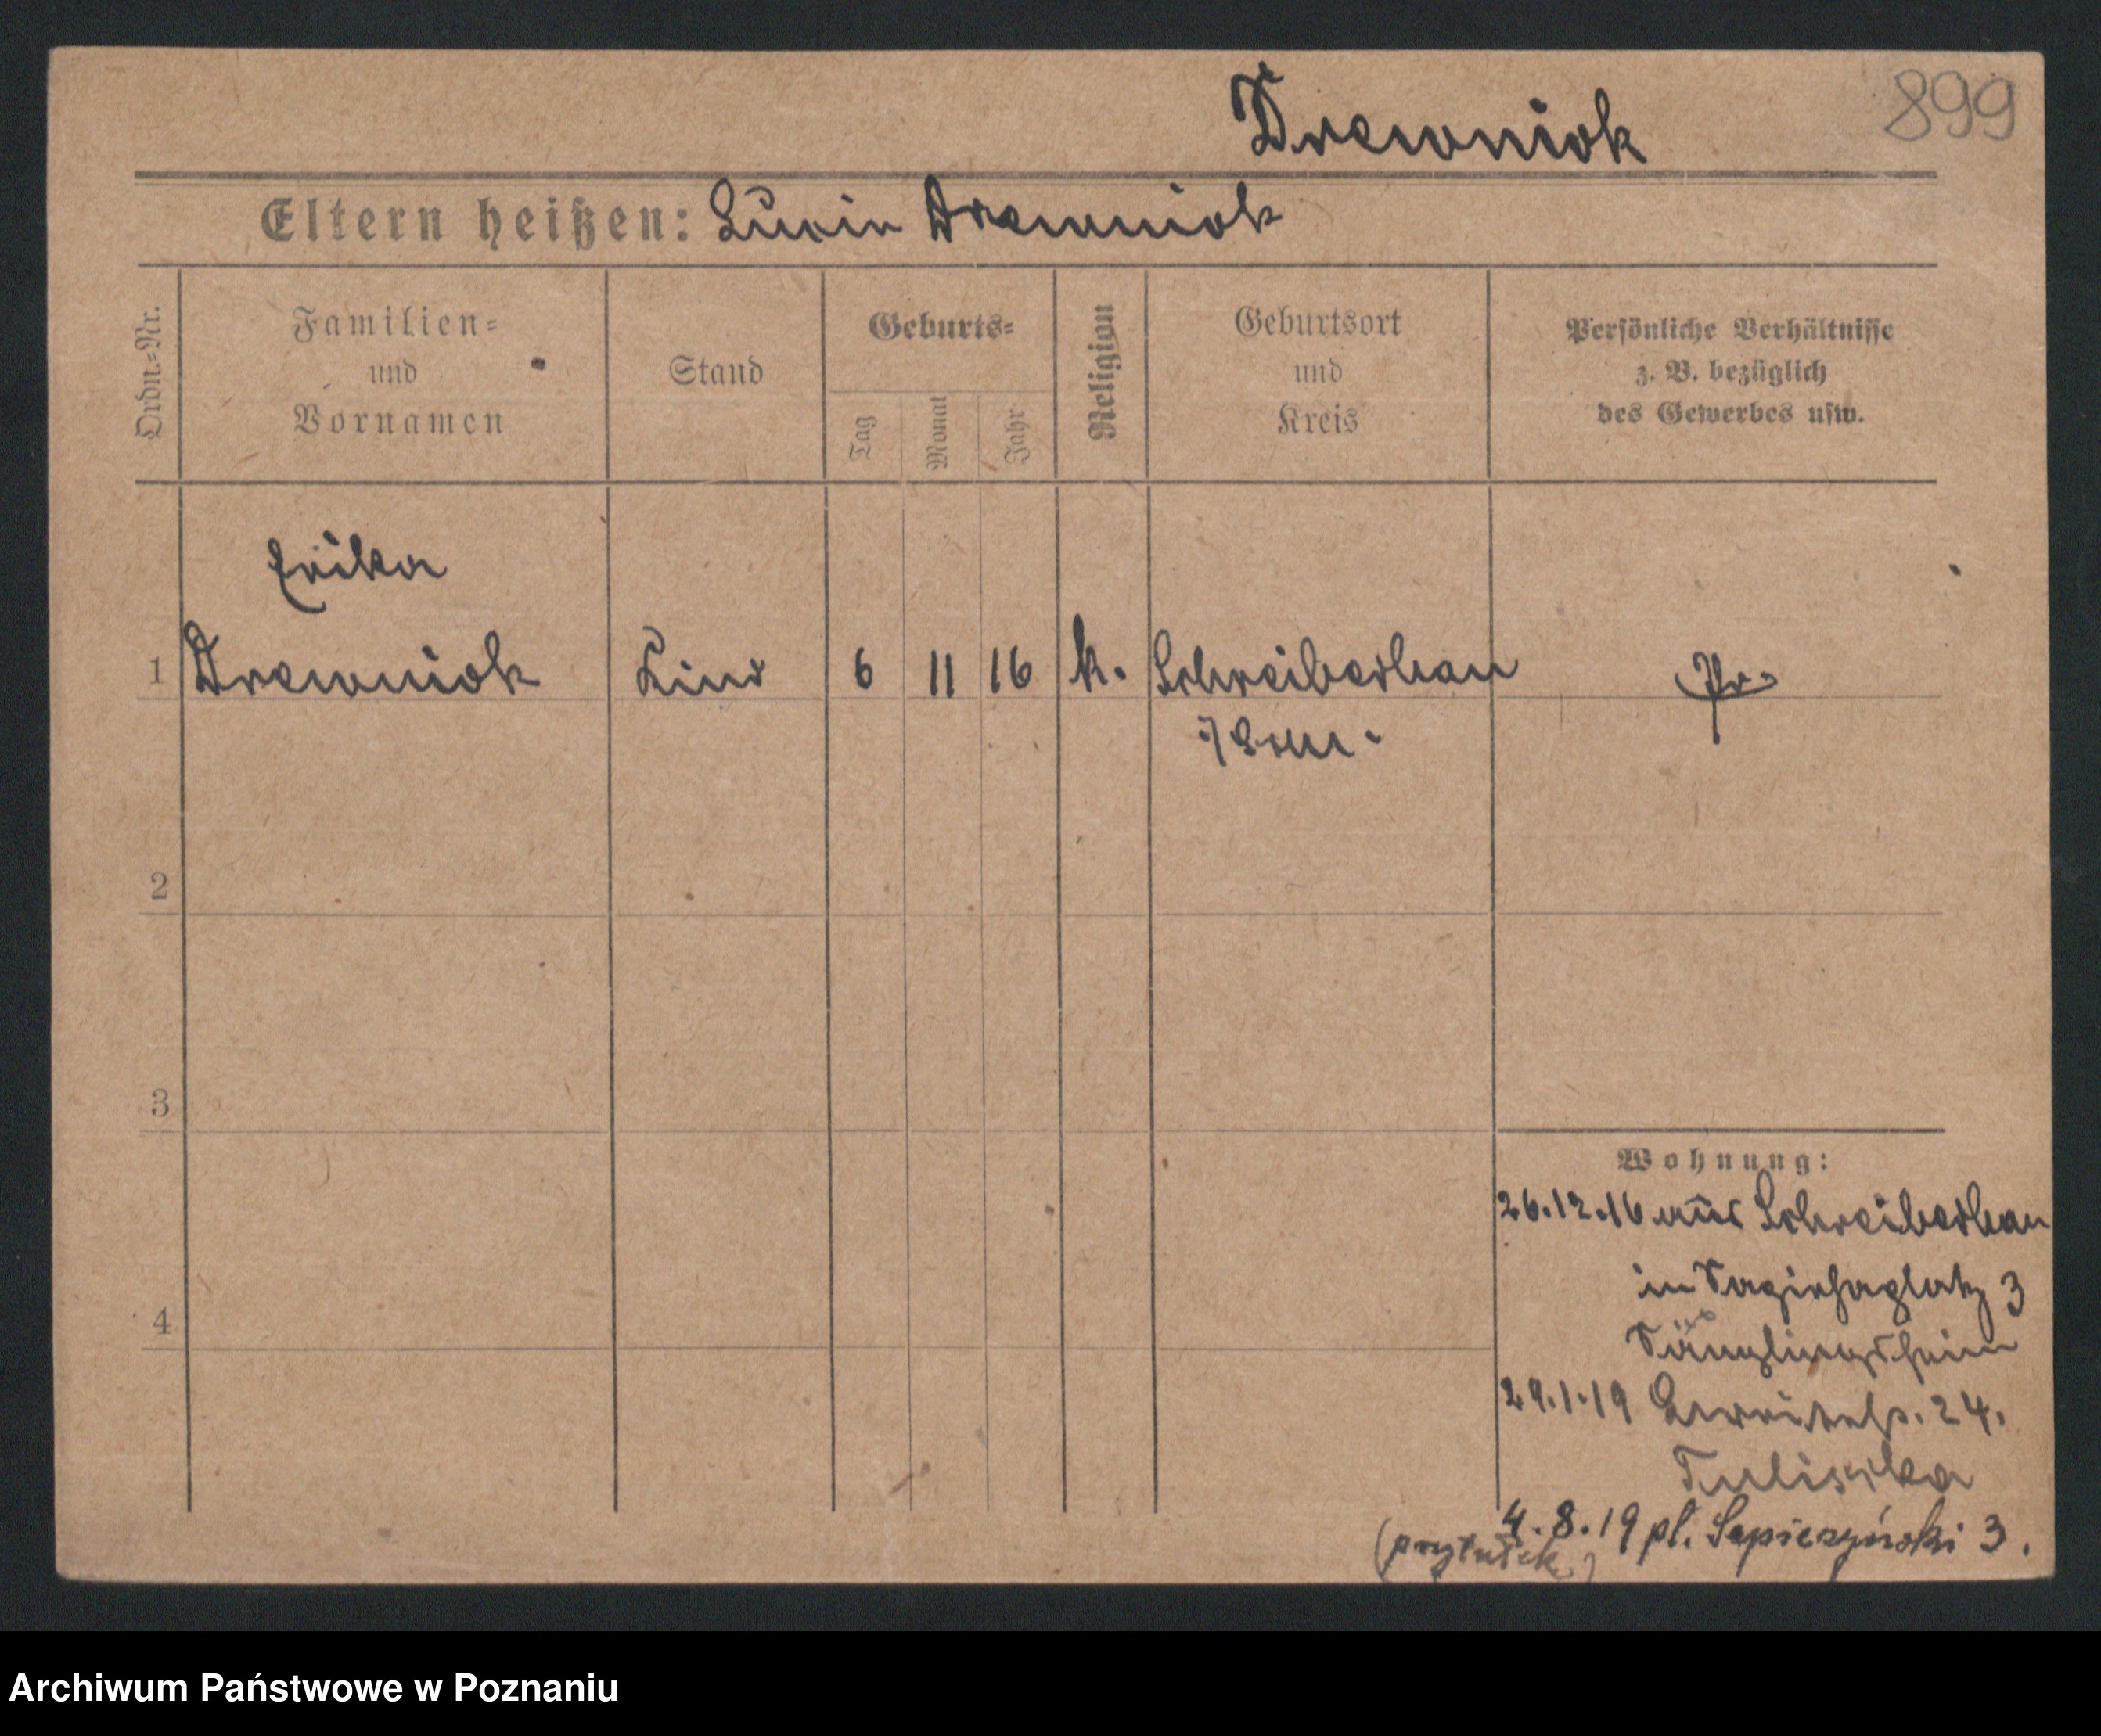 899
Drewniok
Eltern heißen: Luzie Drewniok
Ordn.=Nr.
Familien=
und
Vornamen
Stand
Geburts=
Tag
Monat
Jahr
Religion
Geburtsort
und
Kreis
Persönliche Verhältnisse
z. B. bezüglich
des Gewerbes usw.
Erika
1 Drewniok Kind 6 11 16 k. Schreiberhau Pr.
2
3
4
Wohnung:
26.12.16 aus Schreiberhau
in Sapiehaplatz 3
Säuglingsheim
29.1.19 24.
Tuliszka
4.8.19 pl. Sapieżyński 3.
(przytułek)
Archiwum Państwowe w Poznaniu